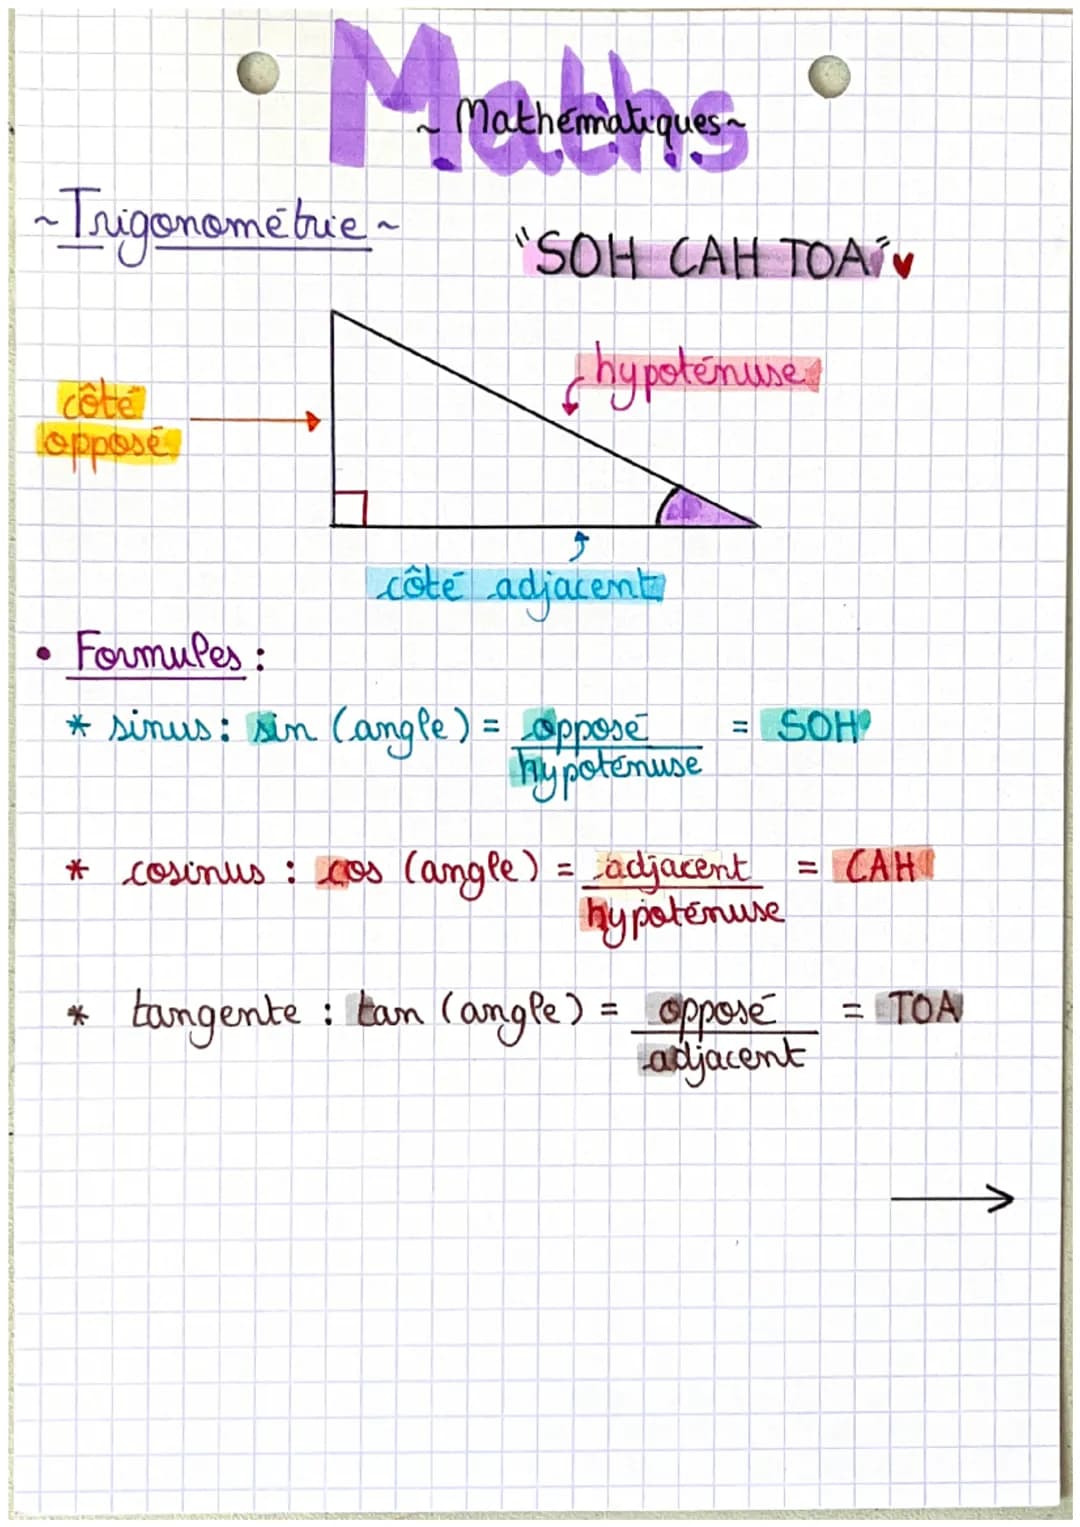 Maths
~ Mathématiques ~
~ Trigonométrie ~
"SOH CAH TOA" ♥
hypoténuse
côté
opposé
côté adjacent
• Formules :
* sinus : sin (angle) = opposé = SOH
hypoténuse
* cosinus : cos (angle) = adjacent = CAH
hypoténuse
* tangente : tan (angle) = opposé = TOA
adjacent